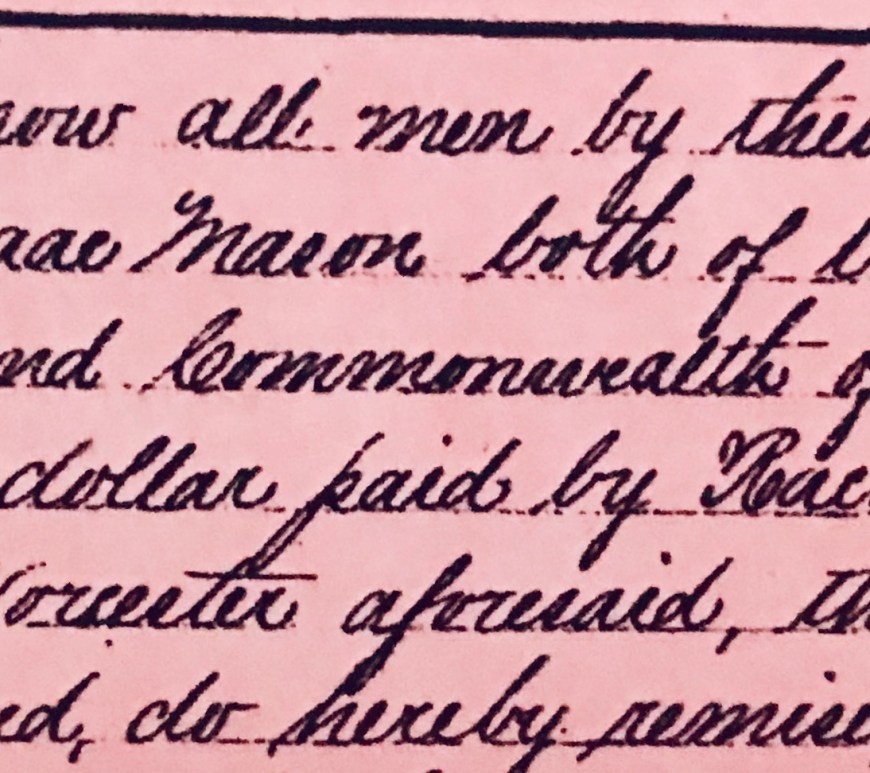 now all men by thes
aac Mason both of
nd Commonwealth of
dollar paid by Rac
Worcester aforesaid, th
ed, do hereby remise